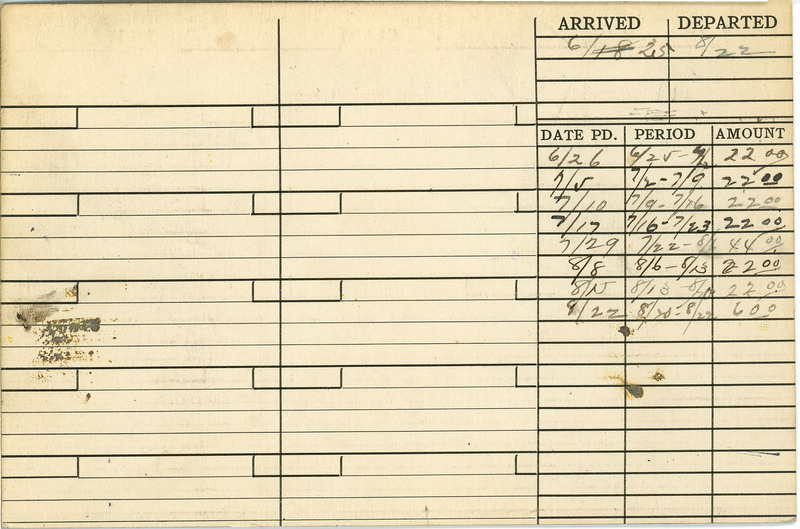 ARRIVED DEPARTED
6/18 25 8/22
DATE PD. PERIOD AMOUNT
6/26 6/25-7/2 22 00
7/5 7/2-7/9 22 00
7/10 7/9-7/16 22 00
7/17 7/16-7/23 22 00
7/29 7/22-8/6 44 00
8/8 8/6-8/13 22 00
8/15 8/13- 22 00
8/22 8/20-8/22 6 00